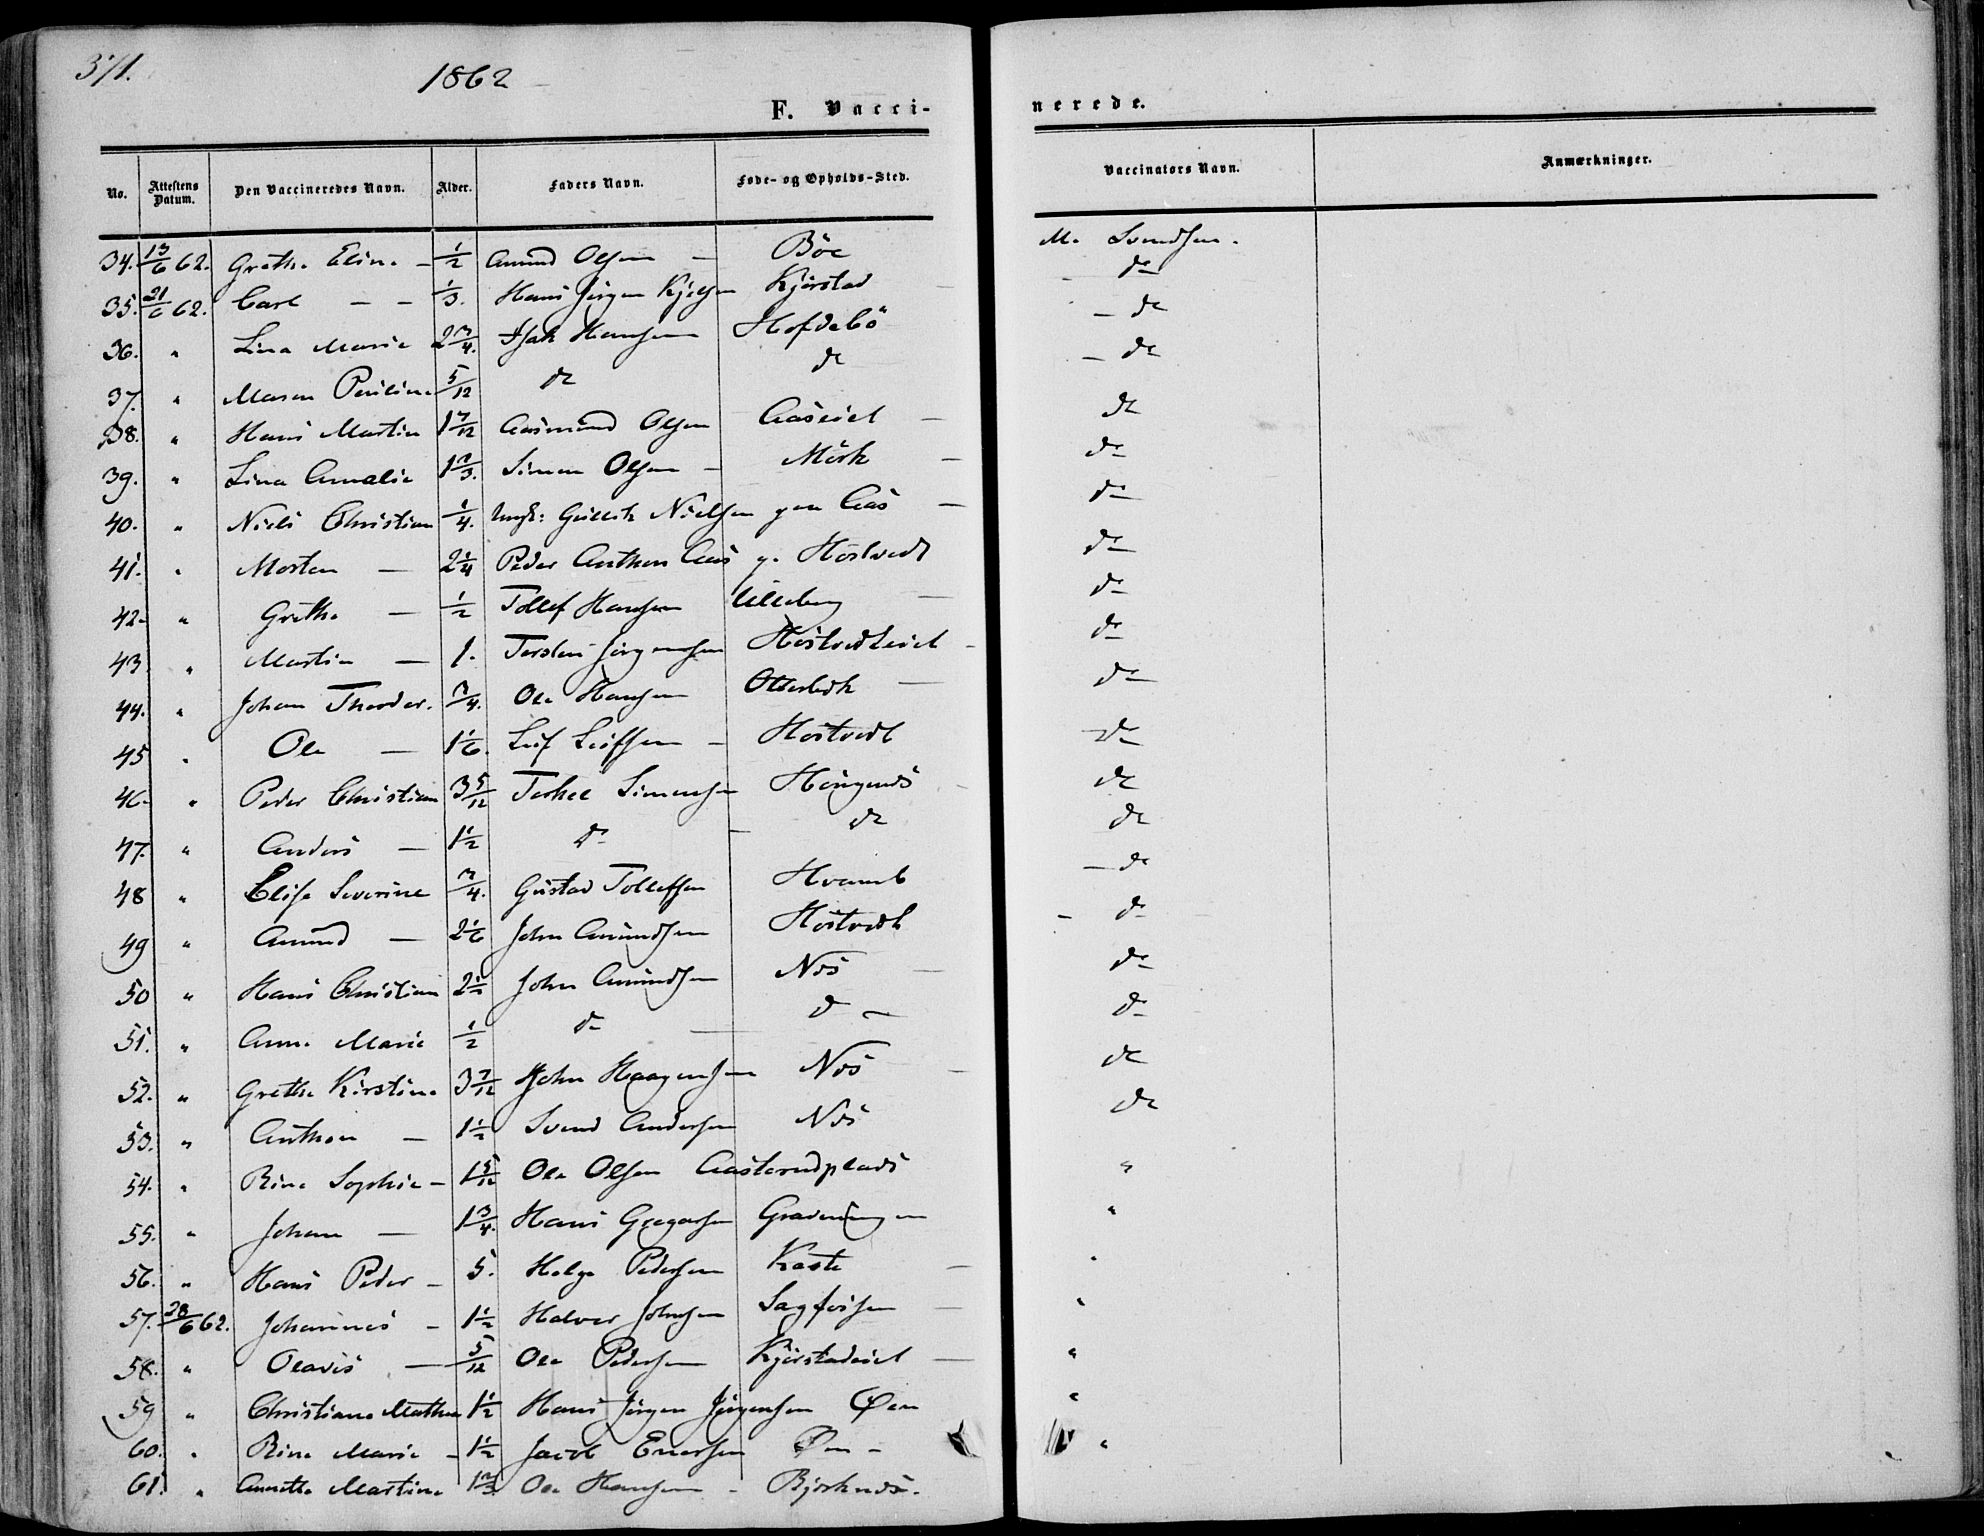 371.
1862
F. Vacci-
nerede.
No. Attestens Datum. Den Vaccineredes Navn. Alder. Faders Navn. Føde- og Opholds-Sted. Vaccinators Navn. Anmærkninger.
34. 13/6 62. Grethe Eline - 1/2 Amund Olsen - Böe M. Svendsen.
35. 21/6 62. Carl - - 1/3. Hans Jörgen Kjelsen Kjörstad do
36. " Lina Marie 2 3/4. Isak Hansen Hofdebö - do
37. " Maren Pauline 5/12 do do - do
38. " Hans Martin 1 7/12 Aasmund Olsen Aaseiet - do
39. " Lina Amalie 1 2/3. Simen Olsen - Mörk - do
40. " Niels Christian 1/4. Ungk: Gullik Nielsen Aas - do
41. " Morten - 2 1/4 Peder Anthon Aas Höstvedt do
42. " Grethe - 1/2 Tollef Hansen Ulleberg - do
43. " Martin - 1. Torsten Jörgensen Höstvedteiet - do
44. " Johan Theodor. 3/4. Ole Hansen Otterbek - do
45 " Ole - 1 1/6. Leif Leifsen - Höstvedt do
46. " Peder Christian 3 5/12 Terkel Simensen - do
47. " Anders - 1 1/2 do - do do
48 " Elise Severine 3/4. Gustav Tollefsen Hvamb - do
49 " Amund - 2 1/6 John Amundsen Höstvedt - do
50 " Hans Christian 2 1/2 John Amundsen Nös - do
51. " Anne Marie 1/2 do - do - do
52. " Grethe Kirstine 3 7/12 John Haagensen Nös - do
53. " Anthon - 1 1/2 Svend Andersen Nös do
54. " Rine Sophie - 1 5/12 Ole Olsen Aasterudplads "
55. " Johan - 1 3/4. Hans Gregersen Gravningen "
56. " Hans Peder - 5. Helge Pedersen Kaste - "
57. 28/6 62. Johannes - 1 1/2 Halvor Johnsen Sagfosen - "
58. " Olavis - 5/12 Ole Pedersen Kjörstadeiet - "
59 " Christiane Mathea 1 1/2 Hans Jörgen Jörgensen Øen "
60. " Rine Marie - 1 1/2 Jacob Enersen Øen - "
61. " Annette Martine 1 2/3. Ole Hansen - Bjorknæs.